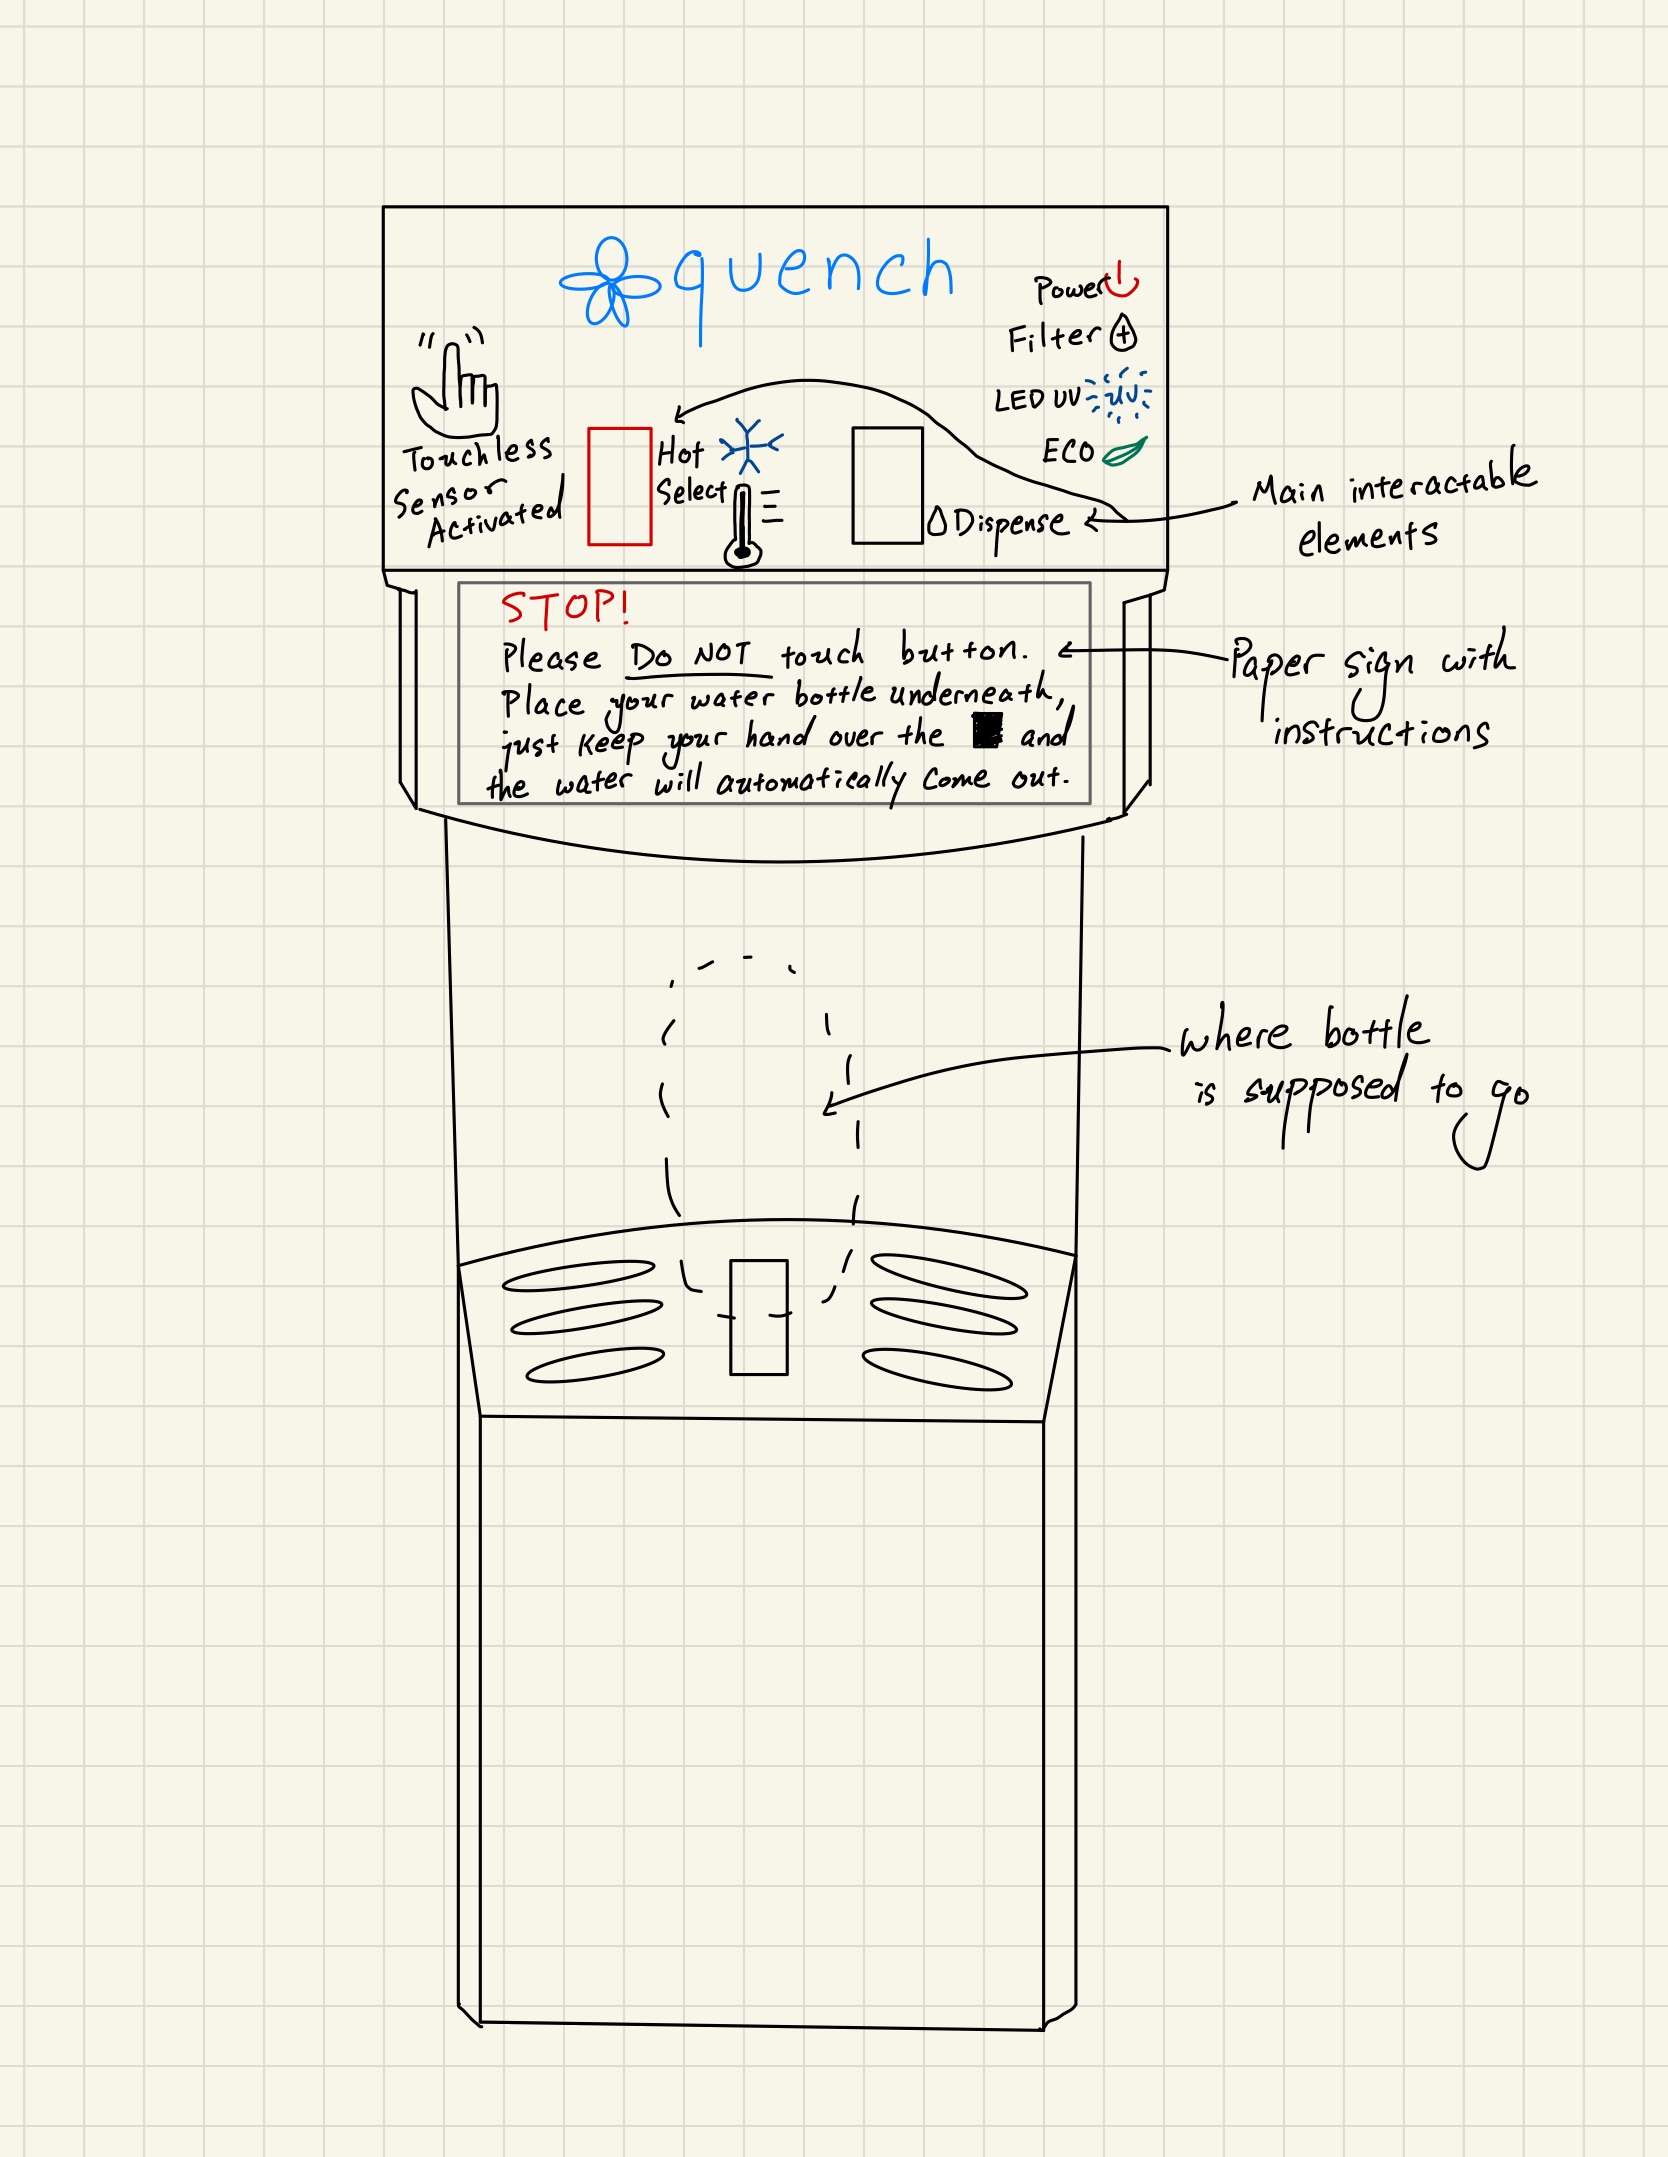 quench
Power
Filter
LED UV UV
ECO
Touchless
Sensor
Activated
Hot
Select
Dispense
Main interactable
elements
STOP!
Please DO NOT touch button.
Place your water bottle underneath,
just keep your hand over the and
the water will automatically come out.
Paper sign with
instructions
where bottle
is supposed to go